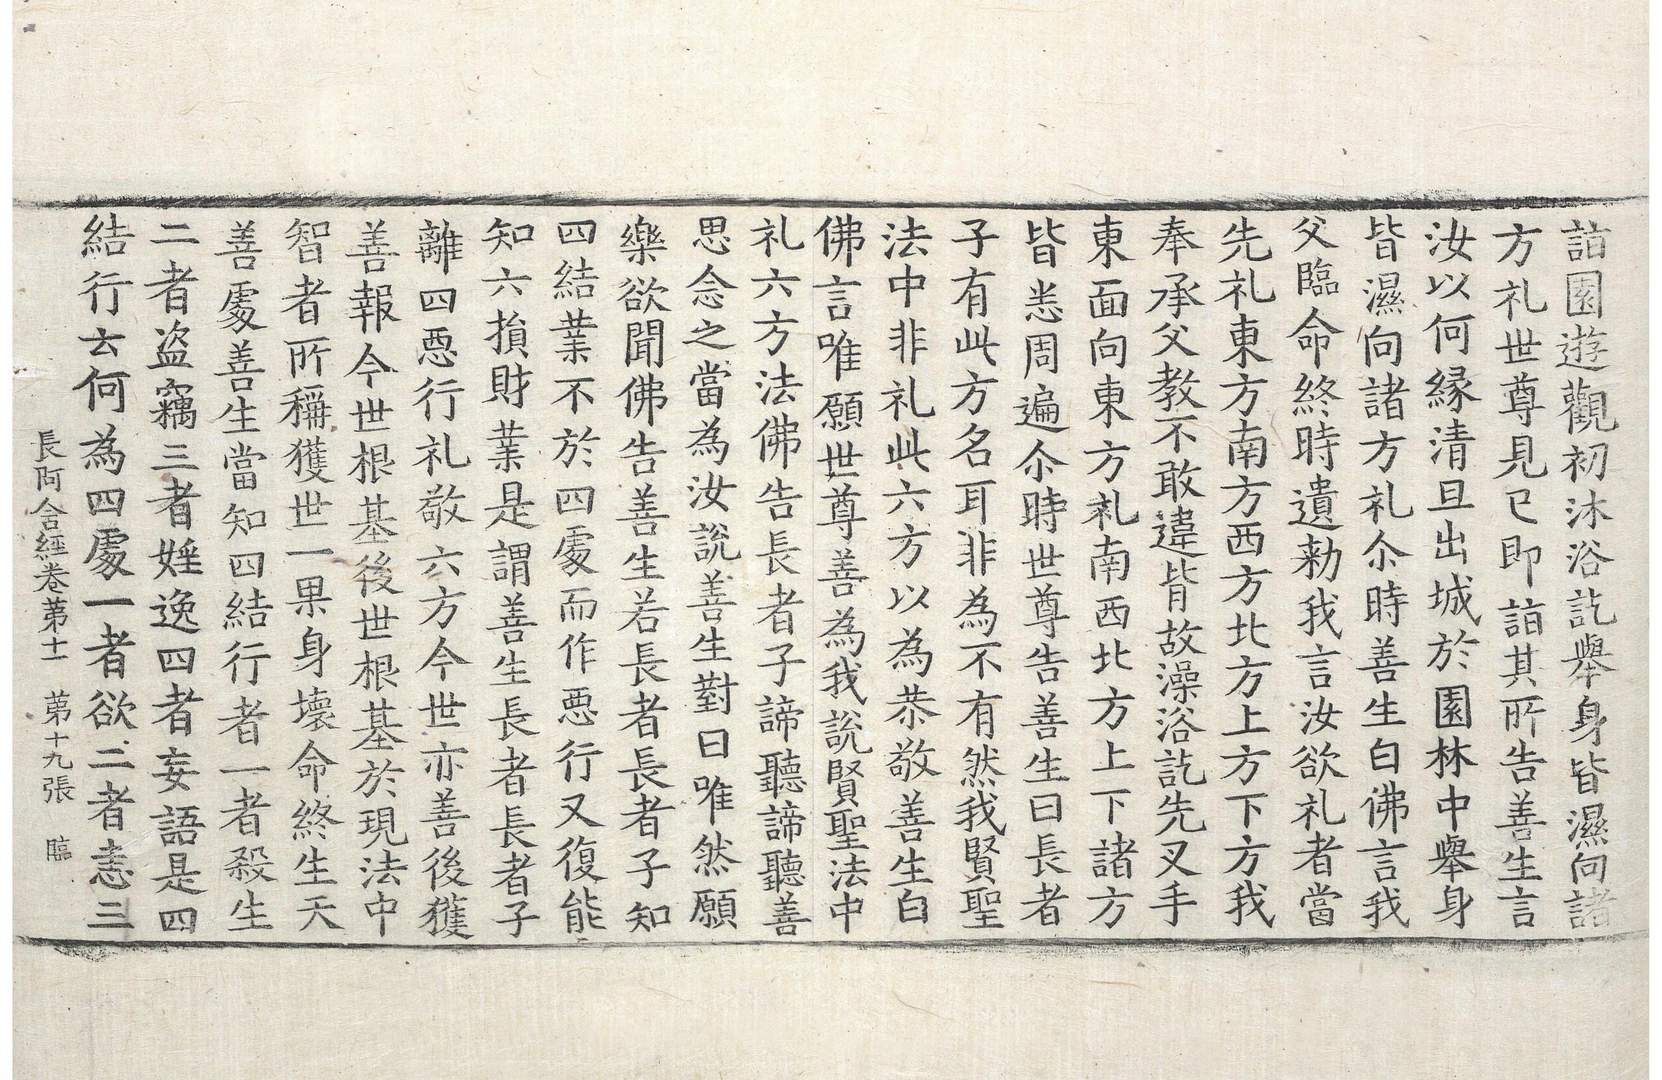 詣園遊觀初沐浴訖舉身皆濕向諸
方礼世尊見已即詣其所告善生言
汝以何縁清旦出城於園林中舉身
皆濕向諸方礼尒時善生白佛言我
父臨命終時遺勑我言汝欲礼者當
先礼東方南方西方北方上方下方我
奉承父教不敢違背故澡浴訖先叉手
東面向東方礼南西北方上下諸方
皆悉周遍尒時世尊告善生曰長者
子有此方名耳非為不有然我賢聖
法中非礼此六方以為恭敬善生白
佛言唯願世尊善為我說賢聖法中
礼六方法佛告長者子諦聽諦聽善
思念之當為汝說善生對曰唯然願
樂欲聞佛告善生若長者長者子知
四結業不於四處而作惡行又復能
知六損財業是謂善生長者長者子
離四惡行礼敬六方今世亦善後獲
善報今世根基後世根基於現法中
智者所稱獲世一果身壞命終生天
善處善生當知四結行者一者殺生
二者盗竊三者婬逸四者妄語是四
結行云何為四處一者欲二者恚三
長阿含經卷第十一 第十九張 臨